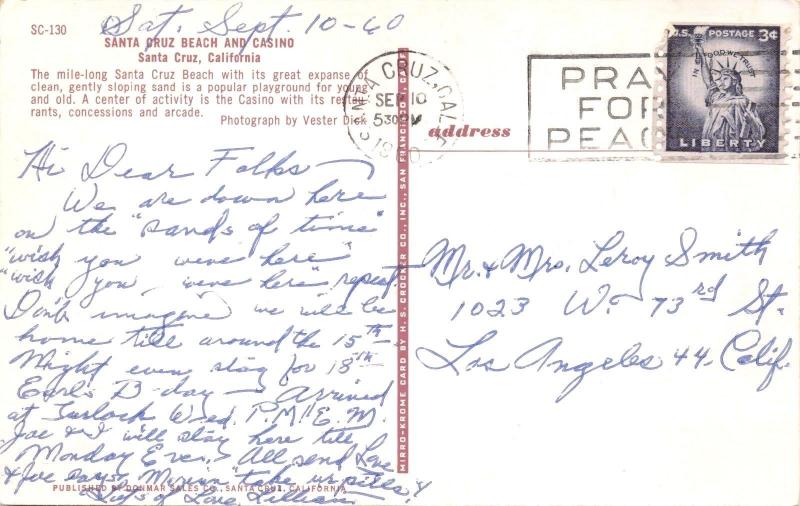 Sat, Sept. 10-60
SC-130
SANTA CRUZ BEACH AND CASINO
Santa Cruz, California
The mile-long Santa Cruz Beach with its great expanse of
clean, gently sloping sand is a popular playground for young
and old. A center of activity is the Casino with its restau-
rants, concessions and arcade.
Photograph by Vester Dick
Hi Dear Folks—
We are down here
on the "sands of time"
"wish you were here"
"wish you were here" repeat.
Don't imagine we will be
home till around the 15th
Might even stay for 18th
Earl's B-day — Arrived
at Turlock Wed. P.M. E.M.
Joe & I will stay here till
Monday Eve. All send Love
& Joe says, "take ur pills"!
Lots of Love Lillian
PUBLISHED BY DONMAR SALES CO., SANTA CRUZ, CALIFORNIA
MIRRO-KROME CARD BY H. S. CROCKER CO., INC., SAN FRANCISCO 1, CALIF.
address
SANTA CRUZ, CALIF.
SEP 10
530 PM
1960
PRAY
FOR
PEACE
U.S. POSTAGE 3¢
IN GOD WE TRUST
LIBERTY
Mr. & Mrs. Leroy Smith
1023 W. 73rd St.
Los Angeles 44. Calif.